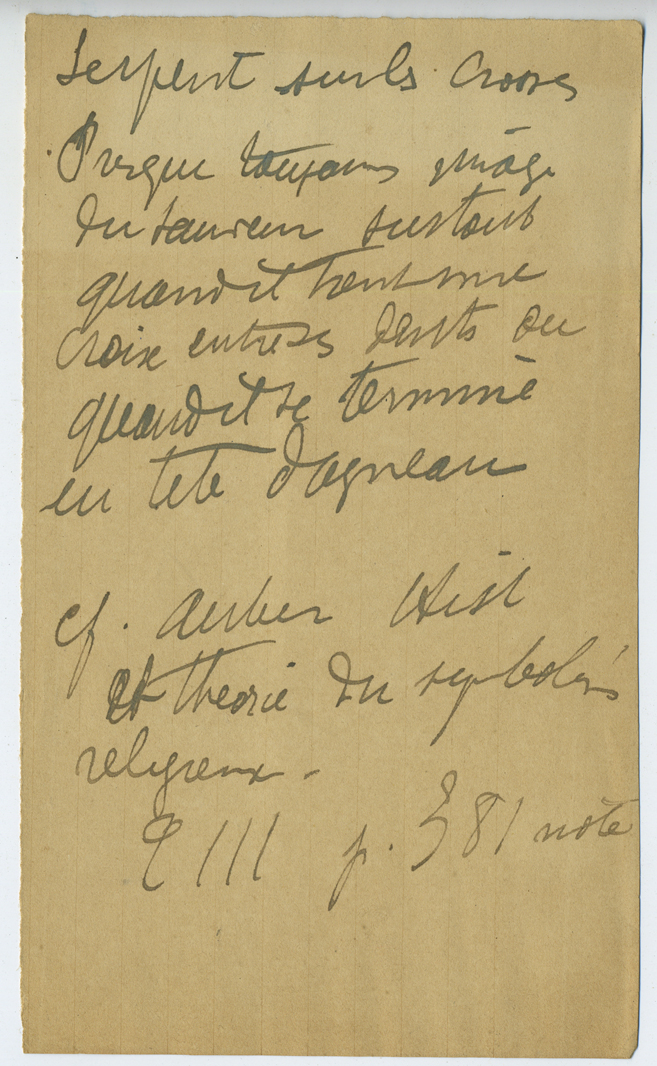 Serpent sur les crosses
Presque toujours image
du sauveur surtout
quand il tient une
croix entre ses dents ou
quand il se termine
en tete d'agneau
cf. Auber Hist
et theorie du symbolism
religieux -
T III p. 381 note